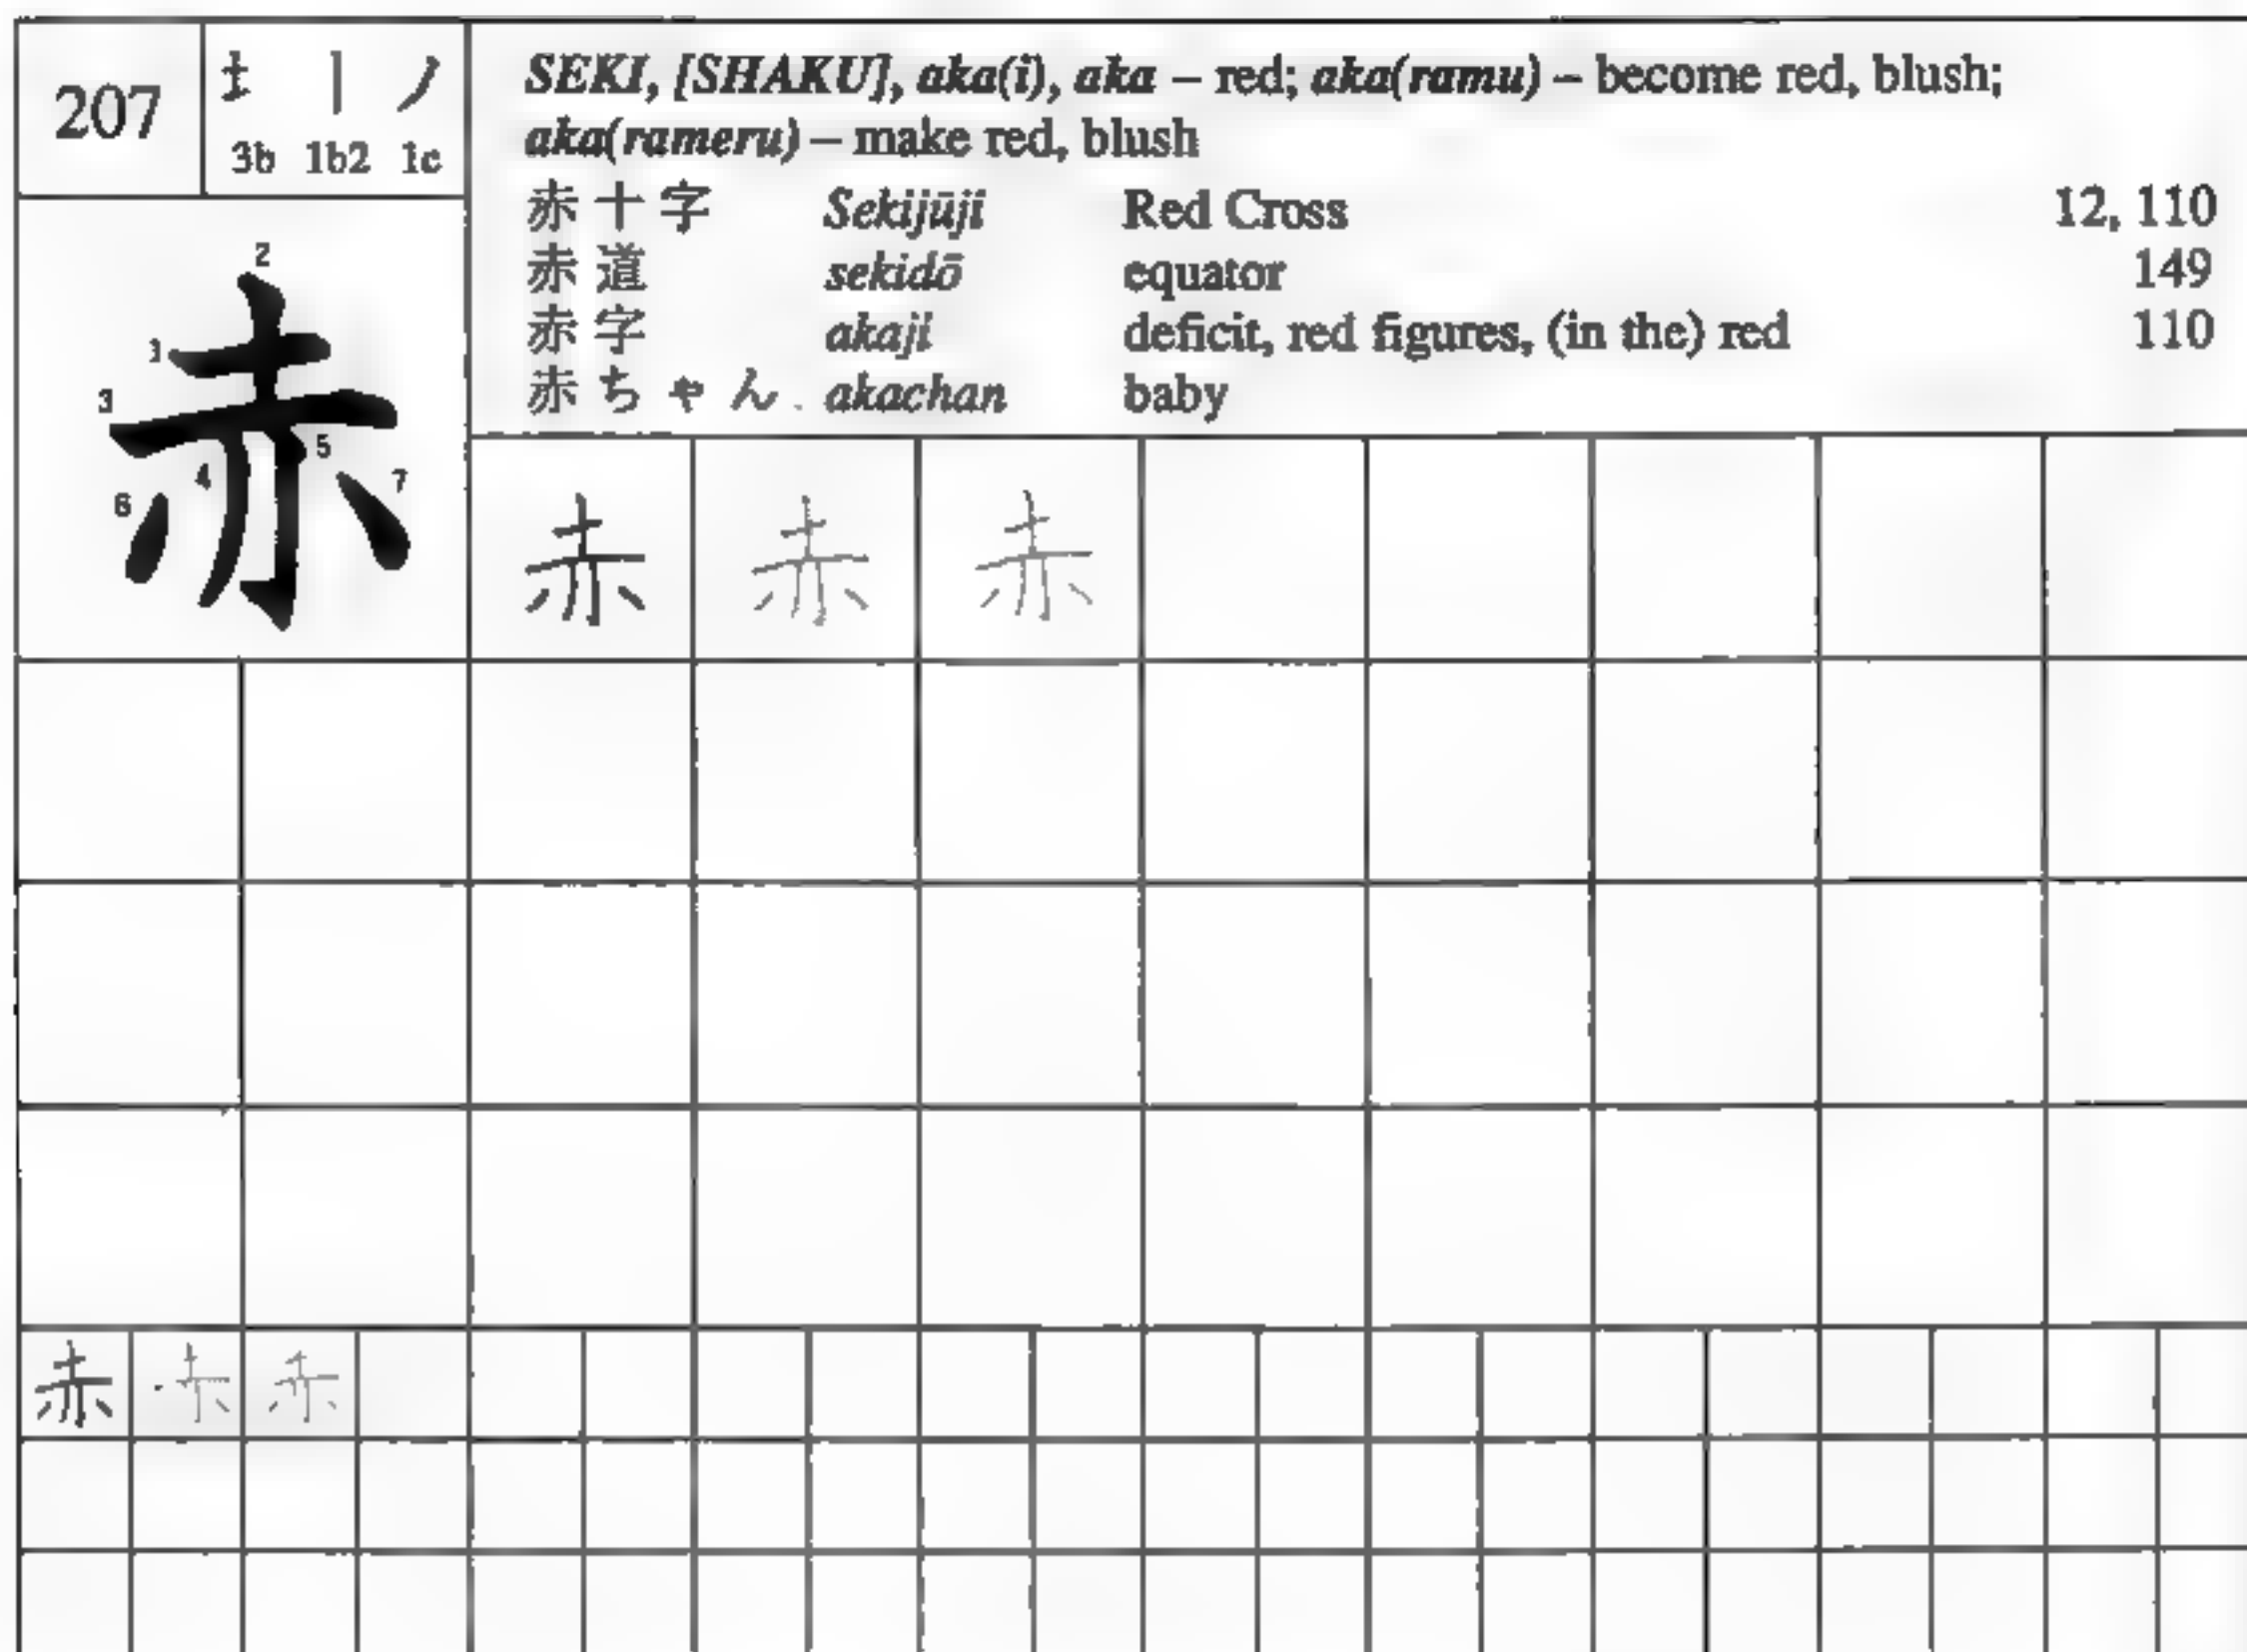 207
扌 丨 ノ
3b 1b2 1c
SEKI, [SHAKU], aka(i), aka – red; aka(ramu) – become red, blush;
aka(rameru) – make red, blush
赤十字 Sekijūji Red Cross 12, 110
赤道 sekidō equator 149
赤字 akaji deficit, red figures, (in the) red 110
赤ちゃん akachan baby
2
1
3
5
4
7
6
赤
赤 赤 赤
赤 赤 赤